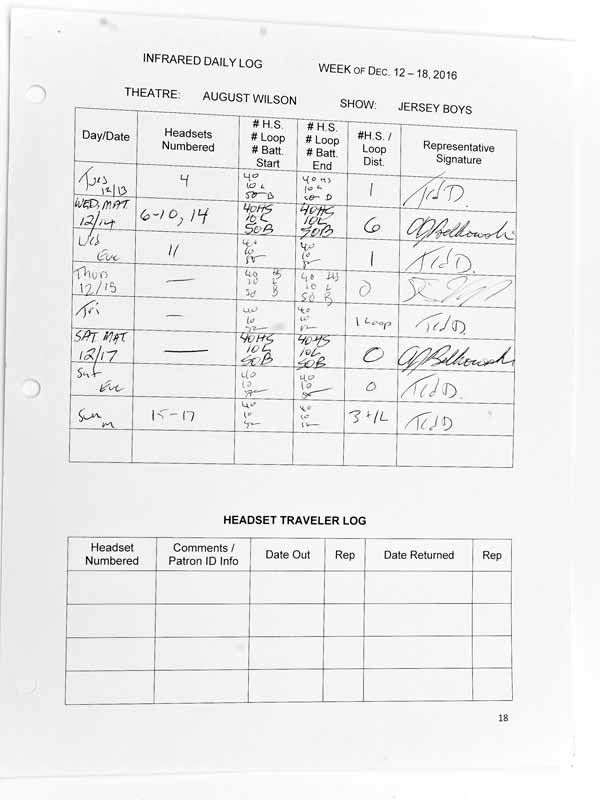 INFRARED DAILY LOG WEEK OF DEC. 12 – 18, 2016
THEATRE: AUGUST WILSON SHOW: JERSEY BOYS
Day/Date Headsets Numbered # H.S. # Loop # Batt. Start # H.S. # Loop # Batt. End #H.S. / Loop Dist. Representative Signature
Tues 12/13 4 40 10 L 50 B 40 HS 10 L 50 B 1 Ted D.
WED, MAT 12/14 6-10, 14 40HS 10L 50B 40HS 10L 50B 6 Belkowski
Wed Eve 11 40 10 40 10 1 Ted D.
Thurs 12/15 — 40 HS 10 L 50 B 40 HS 10 L 50 B 0
Fri — 40 10 40 10 1 Loop Ted D
SAT MAT 12/17 — 40HS 10L 50B 40HS 10L 50B 0 Belkowski
Sat Eve 40 10 40 10 0 Ted D.
Sun m 15-17 40 10 40 10 3+1L Ted D
HEADSET TRAVELER LOG
Headset Numbered Comments / Patron ID Info Date Out Rep Date Returned Rep
18